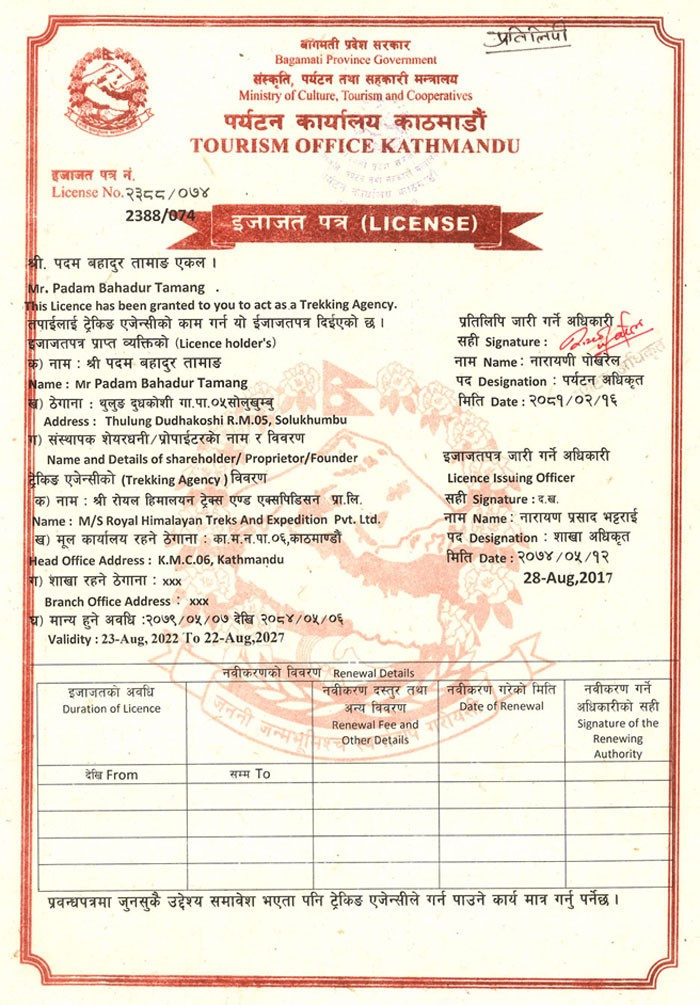 प्रतिलिपी
बागमती प्रदेश सरकार
Bagamati Province Government
संस्कृति, पर्यटन तथा सहकारी मन्त्रालय
Ministry of Culture, Tourism and Cooperatives
पर्यटन कार्यालय काठमाडौं
TOURISM OFFICE KATHMANDU
इजाजत पत्र नं.
License No.२३८८/०७४
2388/074
इजाजत पत्र (LICENSE)
श्री. पदम बहादुर तामाङ एकल ।
Mr. Padam Bahadur Tamang .
This Licence has been granted to you to act as a Trekking Agency.
तपाईलाई ट्रेकिङ एजेन्सीको काम गर्न यो ईजाजतपत्र दिईएको छ ।
इजाजतपत्र प्राप्त व्यक्तिको (Licence holder's)
क) नाम : श्री पदम बहादुर तामाङ
Name : Mr Padam Bahadur Tamang
ख) ठेगाना : थुलुङ दुधकोशी गा.पा.०५सोलुखुम्बु
Address : Thulung Dudhakoshi R.M.05, Solukhumbu
ग) संस्थापक शेयरधनी/प्रोपाईटरको नाम र विवरण
Name and Details of shareholder/ Proprietor/Founder
ट्रेकिङ एजेन्सीको (Trekking Agency) विवरण
क) नाम : श्री रोयल हिमालयन ट्रेक्स एण्ड एक्सपिडिसन प्रा.लि.
Name : M/S Royal Himalayan Treks And Expedition Pvt. Ltd.
ख) मूल कार्यालय रहने ठेगाना : का.म.न.पा.०६,काठमाण्डौं
Head Office Address : K.M.C.06, Kathmandu
ग) शाखा रहने ठेगाना : xxx
Branch Office Address : xxx
घ) मान्य हुने अवधि :२०७९/०५/०७ देखि २०८४/०५/०६
Validity : 23-Aug, 2022 To 22-Aug,2027
प्रतिलिपि जारी गर्ने अधिकारी
सही Signature :
नाम Name: नारायणी पोखरेल
पद Designation: पर्यटन अधिकृत
मिति Date : २०८१/०२/१६
इजाजतपत्र जारी गर्ने अधिकारी
Licence Issuing Officer
सही Signature : द.ख.
नाम Name: नारायण प्रसाद भट्टराई
पद Designation: शाखा अधिकृत
मिति Date : २०७४/०५/१२
28-Aug,2017
नवीकरणको विवरण Renewal Details
इजाजतको अवधि
Duration of Licence
नवीकरण दस्तुर तथा
अन्य विवरण
Renewal Fee and
Other Details
नवीकरण गरेको मिति
Date of Renewal
नवीकरण गर्ने
अधिकारीको सही
Signature of the
Renewing
Authority
देखि From
सम्म To
प्रवन्धपत्रमा जुनसुकै उद्देश्य समावेश भएता पनि ट्रेकिङ एजेन्सीले गर्न पाउने कार्य मात्र गर्नु पर्नेछ ।